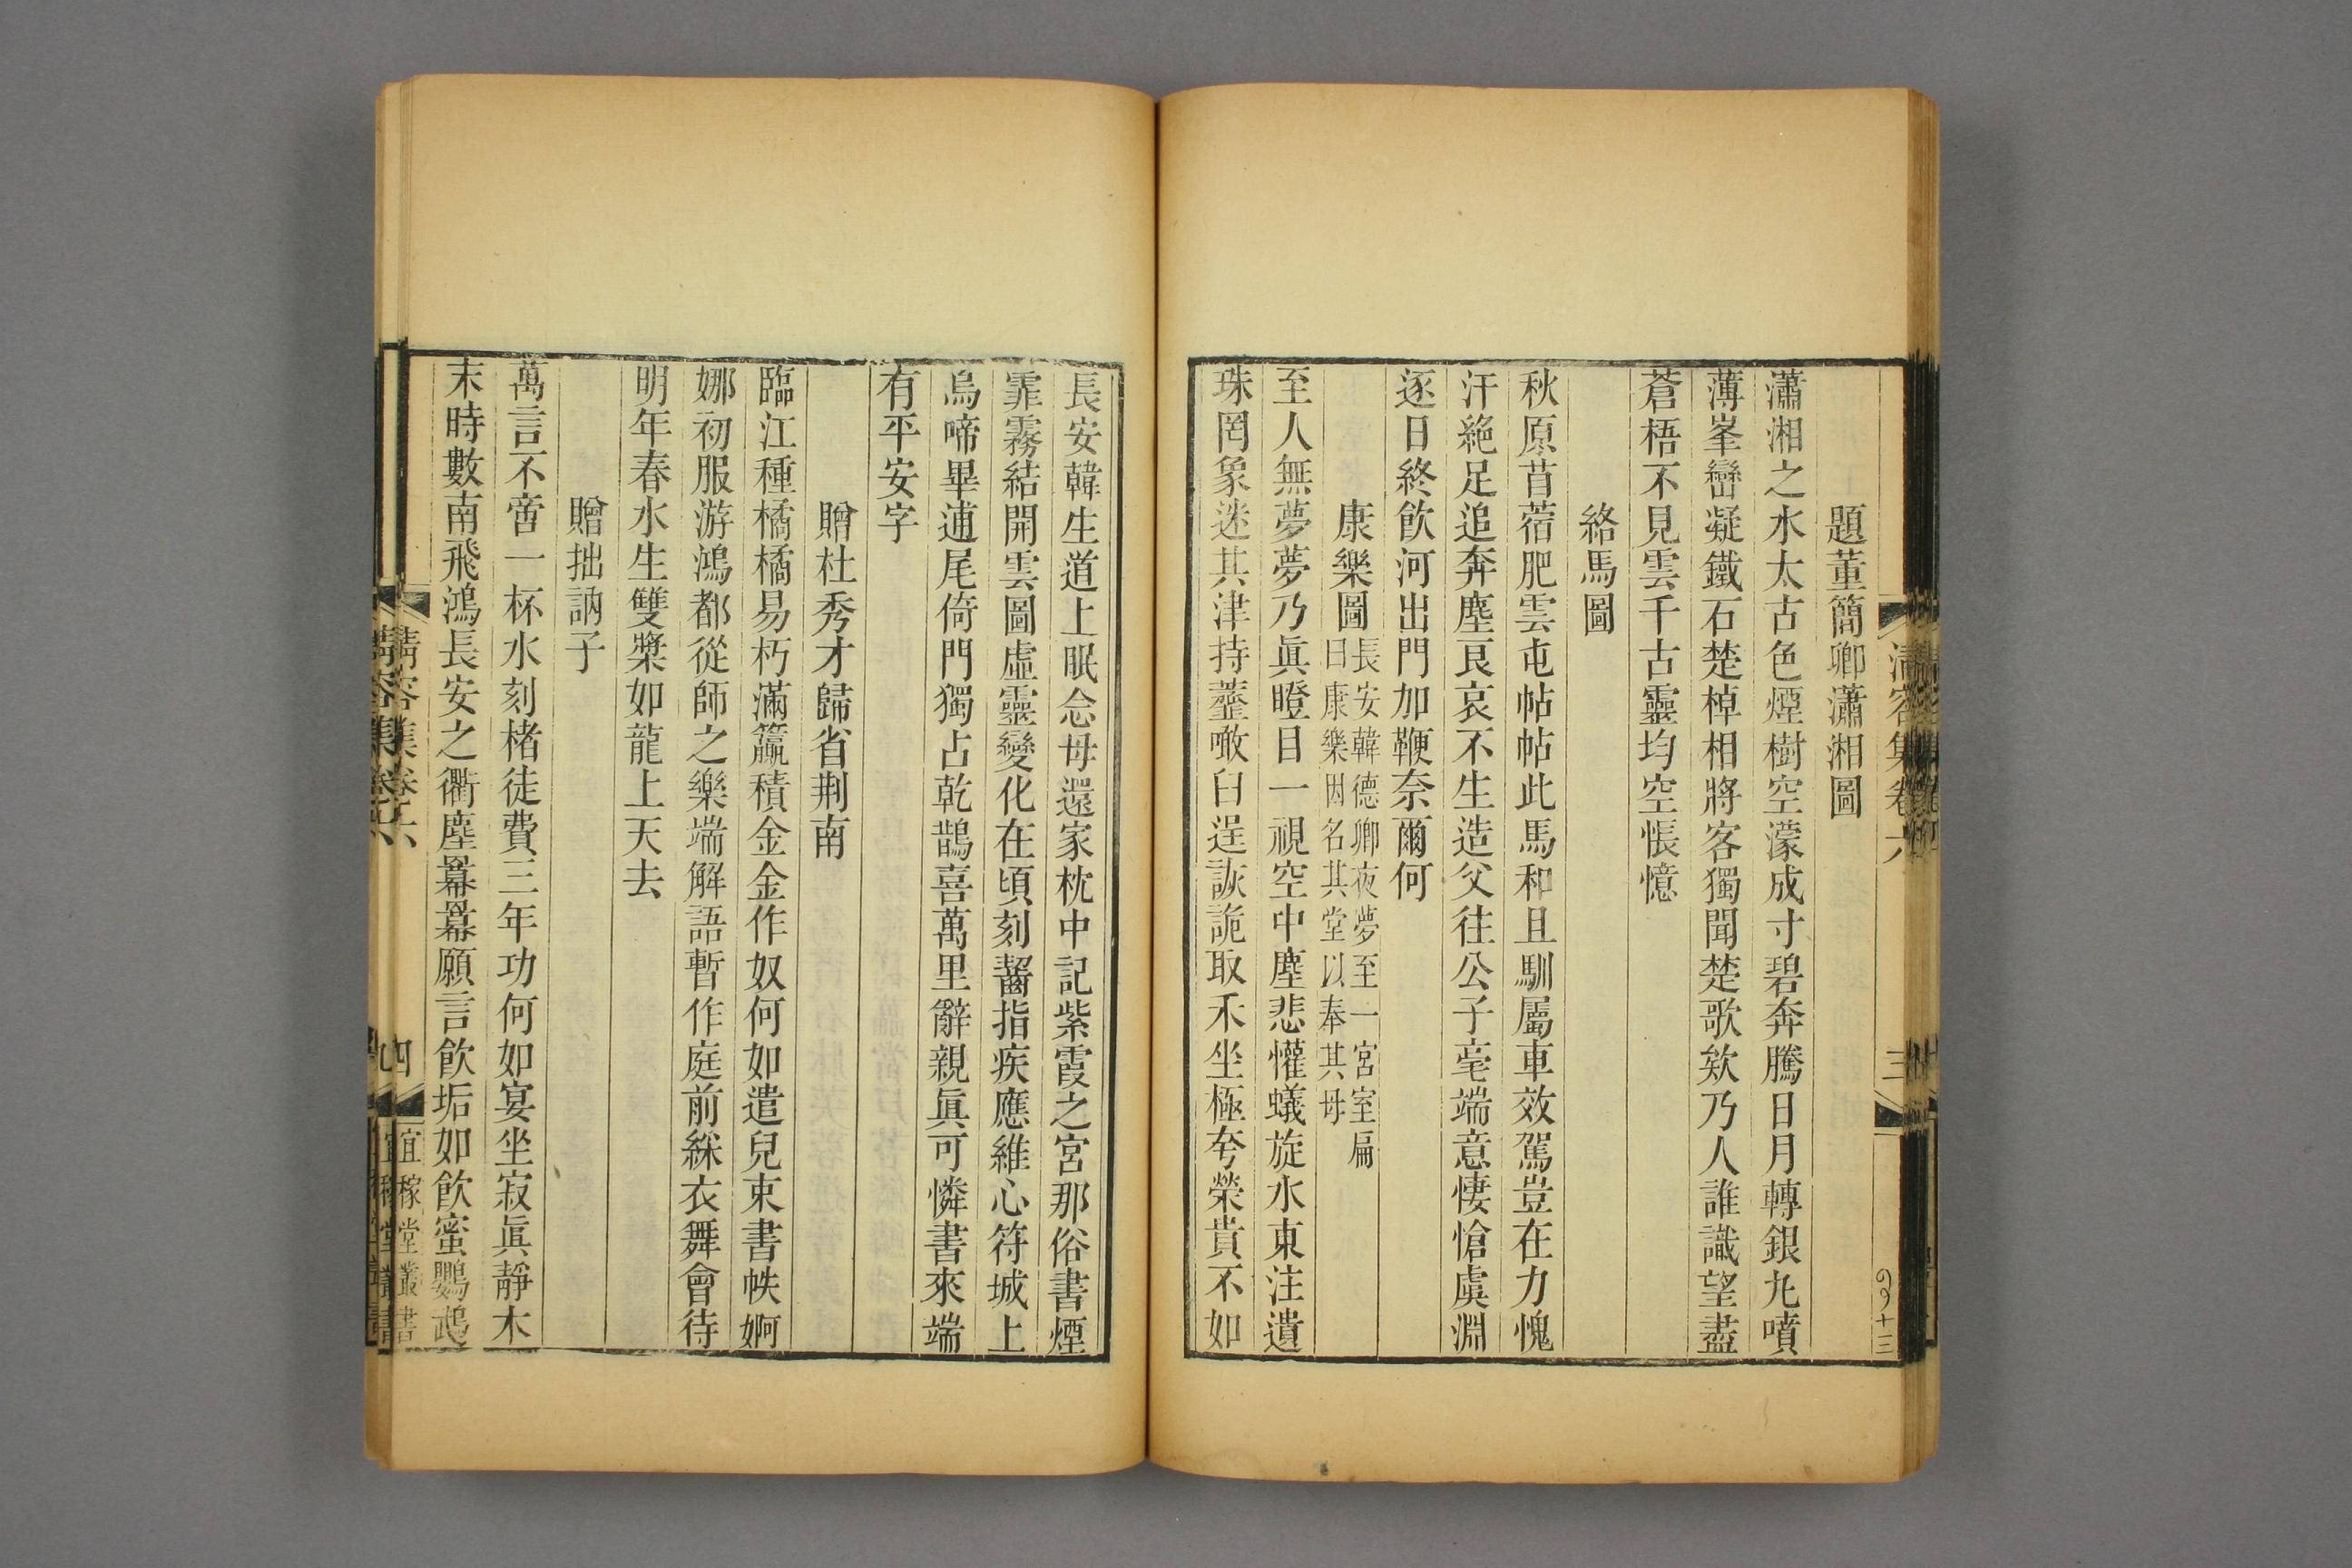 清容集卷六
三
題董簡卿瀟湘圖
瀟湘之水太古色煙樹空濛成寸碧奔騰日月轉銀丸噴
薄峯巒凝鐵石楚棹相將客獨聞楚歌欸乃人誰識望盡
蒼梧不見雲千古靈均空悵憶
絡馬圖
秋原苜蓿肥雲屯帖帖此馬和且馴屬車效駕豈在力愧
汗絶足追奔塵艮哀不生造父往公子毫端意悽愴虞淵
逐日終飲河出門加鞭奈爾何
康樂圖
長安韓德卿夜夢至一宮室扁
曰康樂因名其堂以奉其母
至人無夢夢乃眞瞪目一視空中塵悲懽蟻旋水東注遺
珠罔象迷其津持虀噉臼逞詼詭取禾坐極夸榮貴不如
長安韓生道上眠念母還家枕中記紫霞之宮那俗書煙
霏霧結開雲圖虛靈變化在頃刻齧指疾應維心符城上
烏啼畢逋尾倚門獨占乾鵲喜萬里辭親眞可憐書來端
有平安字
贈杜秀才歸省荆南
臨江種橘橘易朽滿籯積金金作奴何如遣兒束書帙婀
娜初服游鴻都從師之樂端解語暫作庭前綵衣舞會待
明年春水生雙槳如龍上天去
贈拙訥子
萬言不啻一杯水刻楮徒費三年功何如宴坐寂眞靜木
末時數南飛鴻長安之衢塵冪冪願言飲垢如飲蜜鸚鵡
清容集卷六
四
宜稼堂叢書